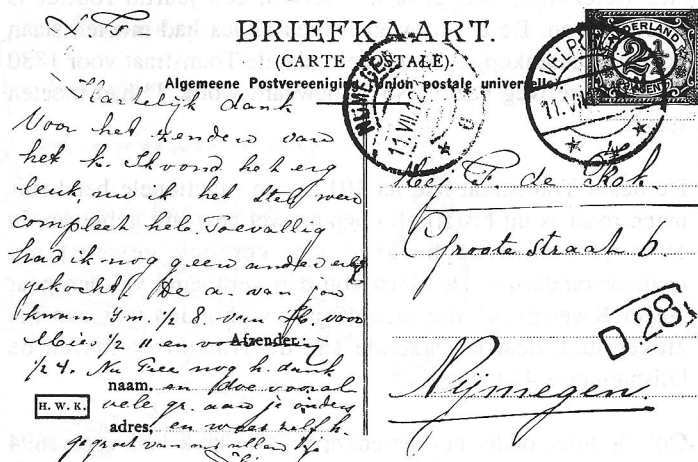 L. F.
BRIEFKAART.
(CARTE POSTALE).
Algemeene Postvereeniging Union postale universelle
NEDERLAND
2½
NIJMEGEN
11.VII.12
VELP
11.VII
Hartelijk dank
Voor het zenden van
het k. Ik vond het erg
leuk, nu ik het stel weer
compleet heb. Toevallig
had ik nog geen andere
gekocht. De a. van
kwam 's m. ½ 8. van
Mies ½ 11 en
Afzender:
½ 4. Nu Free nog h. dank
naam. en doe vooral
vele gr. aan je ouders
adres, en wees zelf h.
gegroet van ons allen
H. W. K.
den Heer F. de Kok
Groote straat 6.
D 28
Nijmegen.